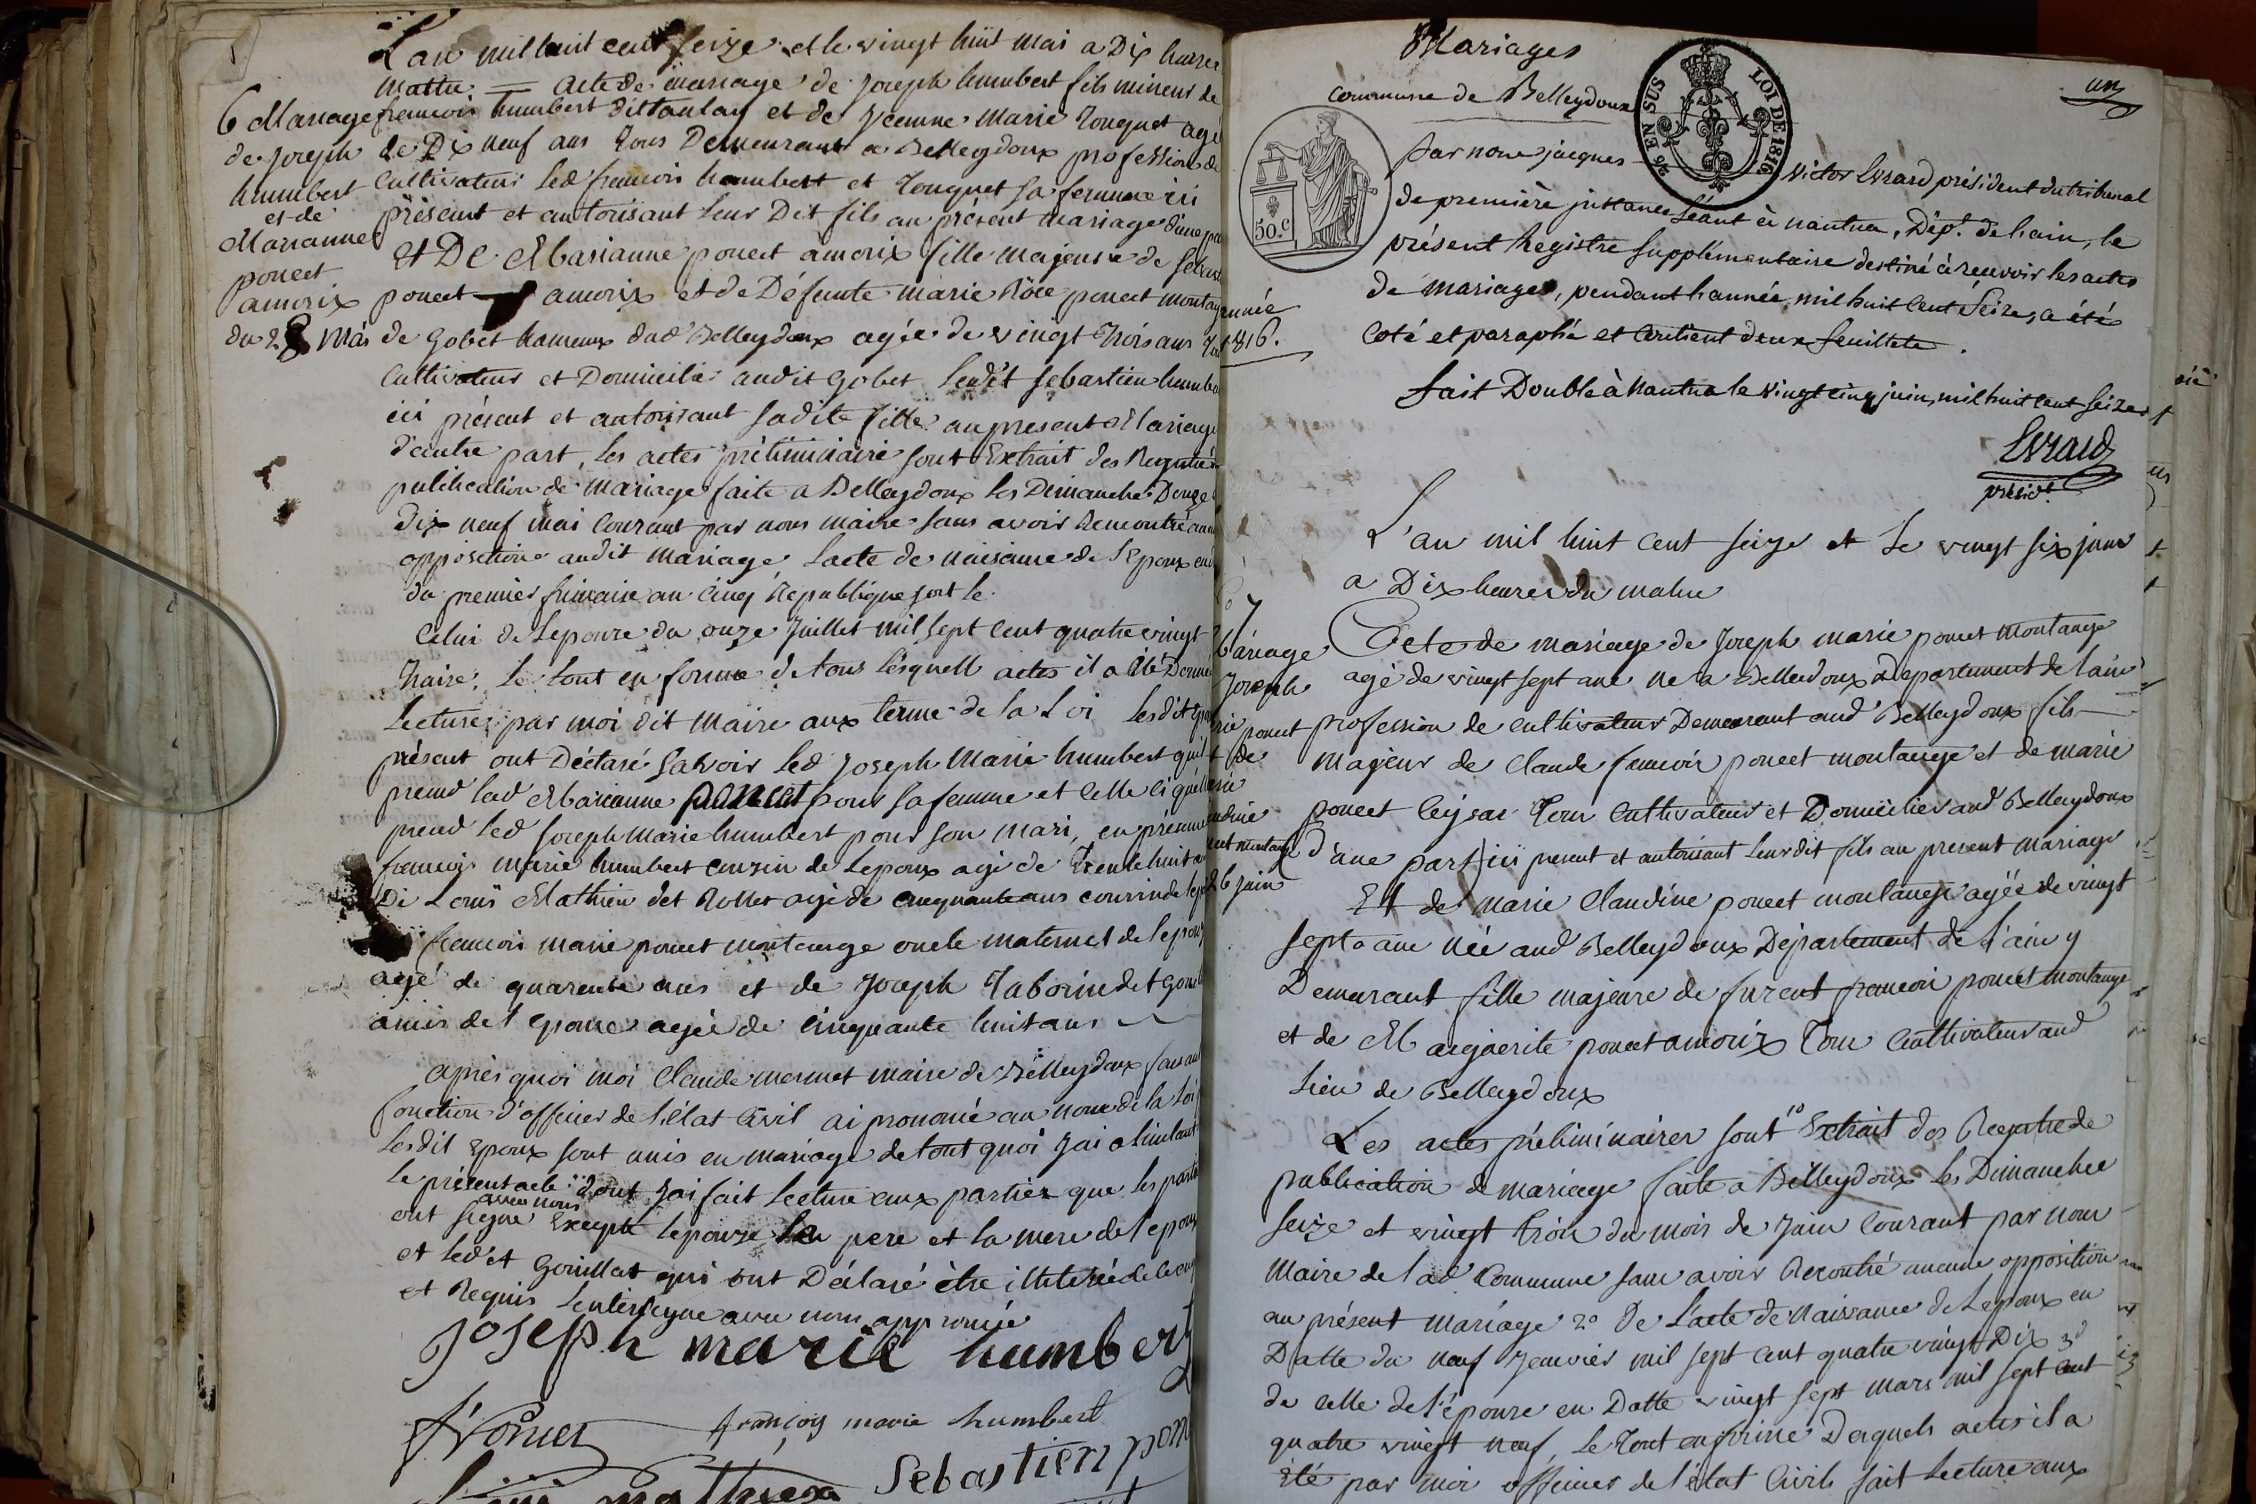 L'an mil huit cent seize et le vingt huit mai a Dix heures
Matin = acte de mariage de joseph humbert fils mineur de
francois humbert dit taulay et de jeanne Marie Touquet agé
de Dix neuf ans tous Demeurant a Belleydoux profession de
Cultivateurs led francois humbert et Touquet sa femme ici
présent et autorisant leur Dit fils au présent Mariage d'une pa
Et De Marianne poncet amorix fille majeure de sebast
poncet amorix et de Défunte marie Rose poncet montange
de Gobet hameaux dud Belleydoux agée de vingt trois ans
Cultivateurs et Domicilié audit Gobet ledit sebastien humbe
ici présent et autorisant sadite fille au present Mariage
d'autre part, les actes préliminaire sont Extrait des Registre
publication de mariage faite a Belleydoux les Dimanche Douze
dix neuf mai Courant par nous maire sans avoir Rencontré
opposition audit mariage lacte de naisance de l'Epoux en
du premier frimaire an cinq Republique soit le
Celui de Lepouse du onze Juillet mil sept cent quatre vingt
Traize, le tout en forme de tous lesquell actes il a été Donné
Lecture par moi dit maire aux terme de la Loi lesdit
présent ont Déclaré savoir led joseph Marie humbert quil
prend lad Marianne poncet pour sa femme et celle ci quelle
prend led joseph Marie humbert pour son mari, en présence
francois marie humbert cousin de Lepoux agé de Trente huit a
De Louis Mathieu det Rollet agé de cinquante ans cousin de lep
francois marie poncet montange oncle maternel de lepous
agé de quarente ans et de Joseph Taborin det
amis de l'Epouse agée de cinquante huit ans
après quoi moi Claude mermet maire de Belleydoux faisant
fonction d'officier de l'état Civil ai prononcé au nom de la Loi
lesdit Epoux sont unis en mariage de tout quoi jai
le présent acte dont jai fait lecture aux parties que les partie
ont signé avec nous Excepté lepouze le pere et la mere de l'epoux
et led et Gouillat qui ont Déclaré être illiteré de ce
et Requis lenterligne avec nous approuvée
joseph marie humbert
françois marie humbert
Sebastien ponc
6 Mariage
de joseph
humbert
et de
Marianne
poncet
amorix
du 28 Mai
Mariages
Commune de Belleydoux
un
26 EN SUS
LOI DE 1816
50.C
année
1816.
Par nous jacques Victor Evrard président du tribunal
de première instance séant à nantua, Dép.t de l'ain, le
présent Registre supplémentaire destiné à recevoir les actes
de mariages, pendant l'année mil huit Cent Seize, a été
Coté et paraphé et Contient deux feuillets.
fait Double à Nantua le vingt cinq juin, mil huit cent seize
Evrard
présid.t
L'an mil huit cent seize et le vingt six juin
a Dix heures du matin
7
Mariage
Joseph
rie poncet
t de
arie
audine
cet montange
26 juin
Acte de mariage de Joseph marie poncet Montange
agé de vingt sept ans né a Belleydoux departement de lain
profession de cultivateur Demeurant aud Belleydoux fils
Majeur de Claude francois poncet montange et de marie
poncet leysar Tous Cultivateur et Domicilier aud Belleydoux
d'une part ici present et autorisant leurdit fils au present mariage
Et de Marie Claudine poncet montange agée de vingt
sept ans née aud Belleydoux Département de l'ain y
Demeurant fille majeure de furent francois poncet Montange
et de Marguerite poncet amorix Tous Cultivateur aud
Lieu de Belleydoux
Les actes préliminaires sont 1o Extrait des Registre de
publication de mariage faite a Belleydoux les Dimanche
seize et vingt trois du mois de juin Courant par nous
Maire de lad Commune sans avoir Recontré aucune opposition
au présent mariage 2o De L'acte de naissance de Lepoux en
Datte du neuf Janvier mil sept cent quatre vingt Dix 3o
de celle de l'épouse en Datte vingt sept mars mil sept cent
quatre vingt neuf, le Tout en forme Desquels actes il a
été par moi officier de l'état Civil fait lecture aux